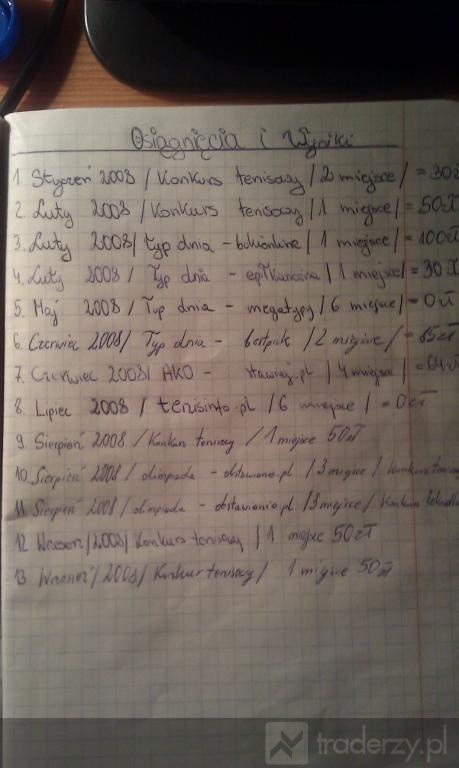 Osiągnięcia i Wyniki
1. Styczeń 2008 / Konkurs tenisowy / 2 miejsce / = 30zł
2. Luty 2008 / Konkurs tenisowy / 1 miejsce / = 50zł
3. Luty 2008 / Typ dnia - / 1 miejsce / = 100zł
4. Luty 2008 / Typ dnia - / 1 miejsce / = 30 zł
5. Maj 2008 / Typ dnia - megatypy / 6 miejsce / = 0zł
6. Czerwiec 2008 / Typ dnia - betpik / 2 miejsce / =
7. Czerwiec 2008 / AKO - stawiaj.pl / 4 miejsce / = 64zł
8. Lipiec 2008 / tenisinfo.pl / 6 miejsce / = 0zł
9. Sierpień 2008 / Konkurs tenisowy / 1 miejsce 50zł
10. Sierpień 2008 / olimpiada - obstawianie.pl / 3 miejsce /
11. Sierpień 2008 / olimpiada - obstawianie.pl / 3 miejsce /
12 Wrzesień / 2008 / Konkurs tenisowy / 1 miejsce 50zł
13 Wrzesień / 2008 / Konkurs tenisowy / 1 miejsce 50zł
traderzy.pl